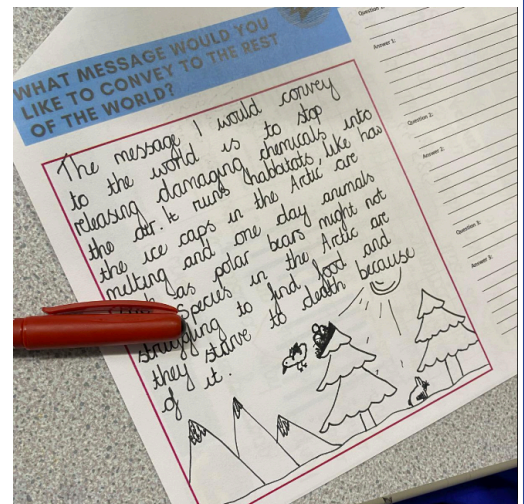 WHAT MESSAGE WOULD YOU
LIKE TO CONVEY TO THE REST
OF THE WORLD?
The message I would convey
to the world is to stop
releasing damaging chemicals into
the air. It ruins habbitats, like how
the ice caps in the Artic are
melting and one day animals
as polar bears might not
Species in the Arctic are
struggling to find food and
they starve to death because
of it.
Question
Answer 1:
Question 2:
Answer 2:
Question 3:
Answer 3: